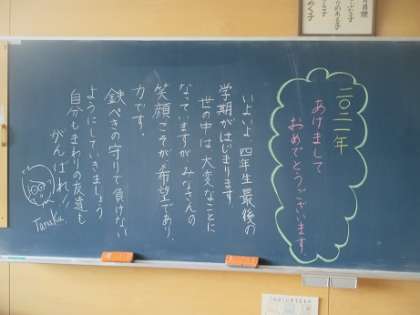 二〇二一年
あけまして
おめでとうございます
いよいよ 四年生最後の
学期がはじまります
世の中は大変なことに
なっていますが みなさんの
笑顔こそが希望であり、
力です。
鉄ぺきの守りで負けない
ようにしていきましょう
自分もまわりの友達も
がんばれ!
100
Tanaka